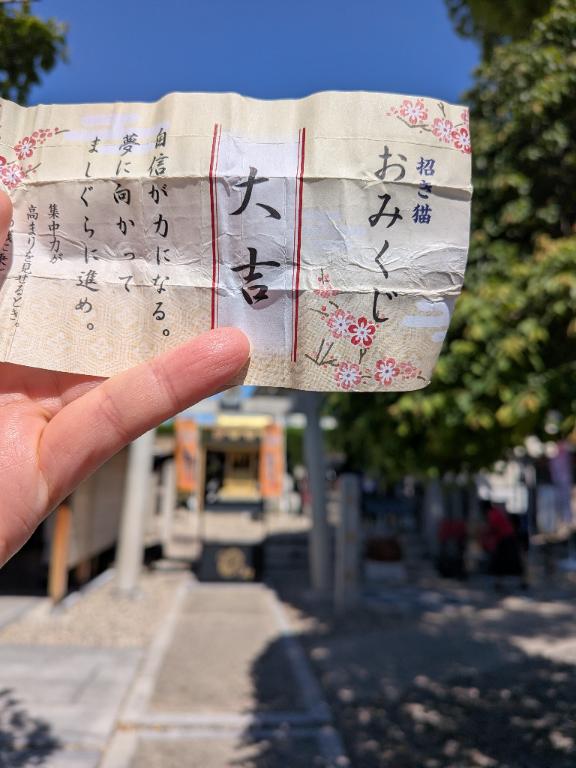 招き猫
おみくじ
大吉
自信が力になる。
夢に向かって
ましぐらに進め。
集中力が
高まりを見せるとき。